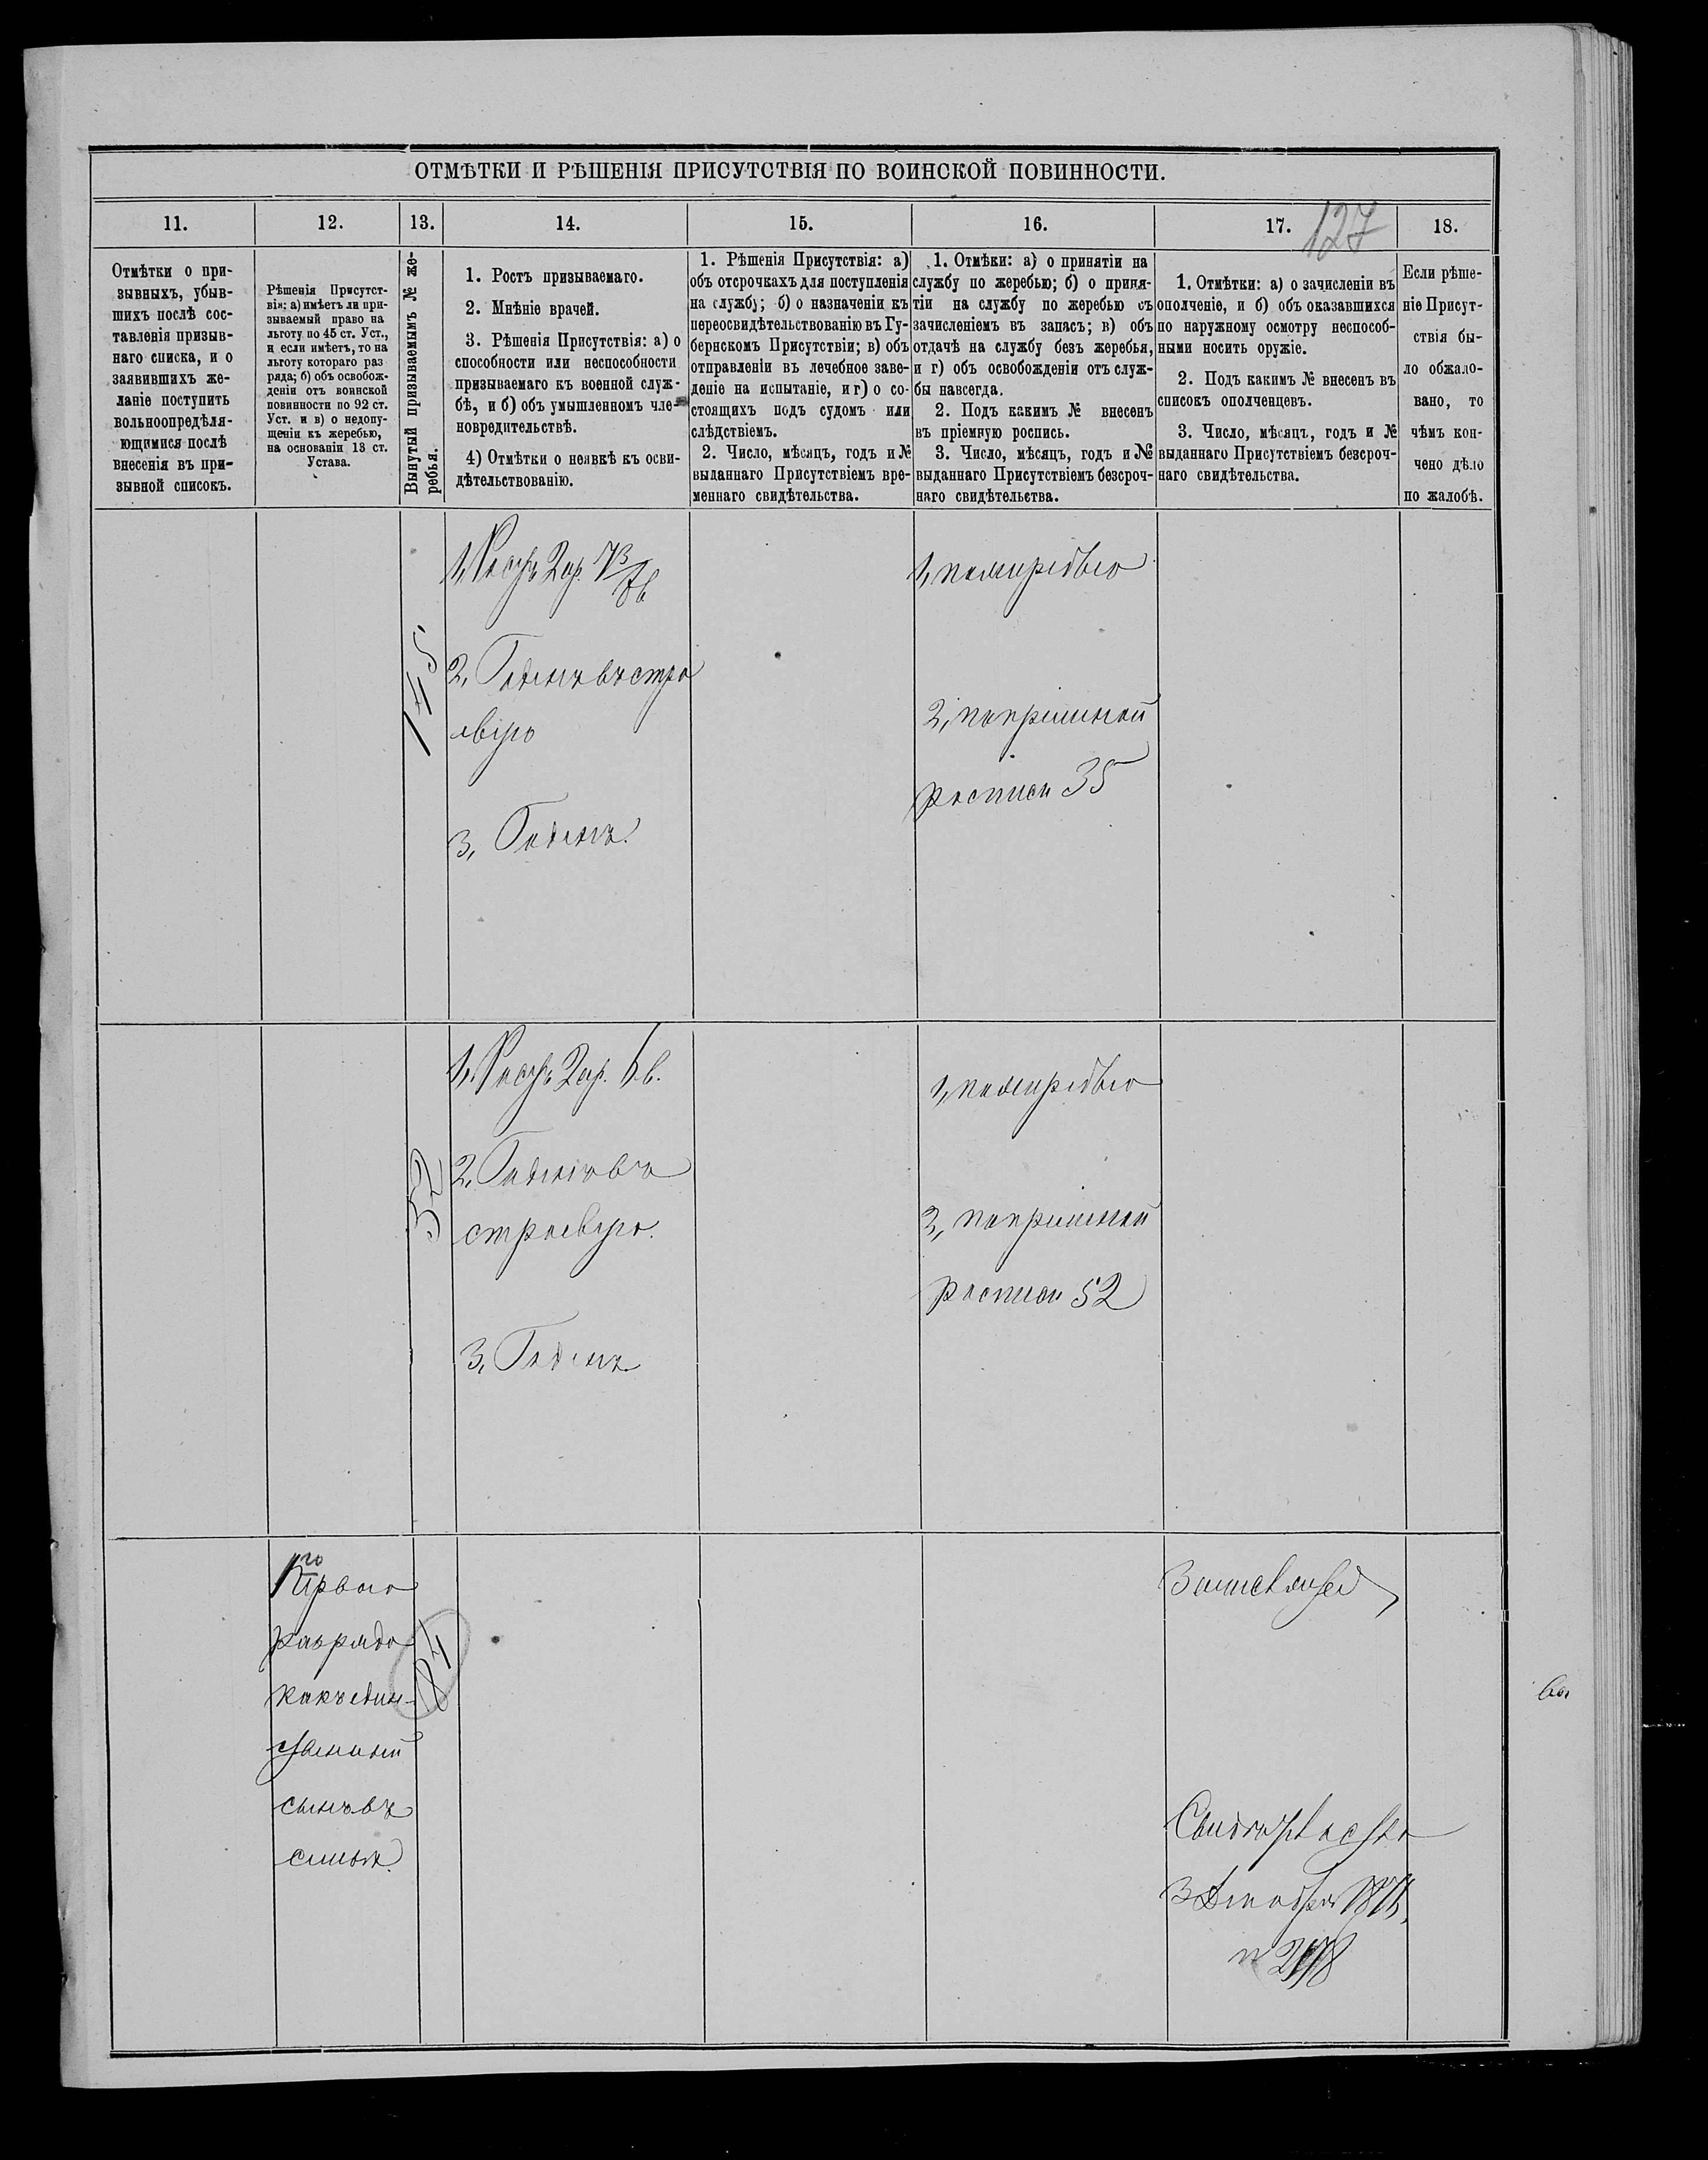 127
ОТМѢТКИ И РѢШЕНІЯ ПРИСУТСТВІЯ ПО ВОИНСКОЙ ПОВИННОСТИ.
11.
12.
13.
14.
15.
16.
17.
18.
Отмѣтки о при-
зывныхъ, убыв-
шихъ послѣ сос-
тавленія призыв-
наго списка, и о
заявившихъ же-
ланіе поступить
вольноопредѣля-
ющимися послѣ
внесенія въ при-
зывной списокъ.
Рѣшенія Присутст-
вія: а) имѣетъ ли при-
зываемый право на
льготу по 45 ст. Уст.,
и если имѣетъ, то на
льготу котораго раз
ряда; б) объ освобож-
деніи отъ воинской
повинности по 92 ст.
Уст. и в) о недопу-
щеніи къ жеребью,
на основаніи 13 ст.
Устава.
Вынутый призываемымъ № же-
ребья.
1. Ростъ призываемаго.
2. Мнѣніе врачей.
3. Рѣшенія Присутствія: а) о
способности или неспособности
призываемаго къ военной служ-
бѣ, и б) объ умышленномъ чле-
новредительствѣ.
4) Отмѣтки о неявкѣ къ осви-
дѣтельствованію.
1. Рѣшенія Присутствія: а)
объ отсрочкахъ для поступленія
на службу; б) о назначеніи къ
переосвидѣтельствованію въ Гу-
бернскомъ Присутствіи; в) объ
отправленіи въ лечебное заве-
деніе на испытаніе, и г) о со-
стоящихъ подъ судомъ или
слѣдствіемъ.
2. Число, мѣсяцъ, годъ и №
выданнаго Присутствіемъ вре-
меннаго свидѣтельства.
1. Отмѣки: а) о принятіи на
службу по жеребью; б) о приня-
тіи на службу по жеребью съ
зачисленіемъ въ запасъ; в) объ
отдачѣ на службу безъ жеребья,
и г) объ освобожденіи отъ служ-
бы навсегда.
2. Подъ какимъ № внесенъ
въ пріемную роспись.
3. Число, мѣсяцъ, годъ и №
выданнаго Присутствіемъ безсроч-
наго свидѣтельства.
1. Отмѣтки: а) о зачисленіи въ
ополченіе, и б) объ оказавшихся
по наружному осмотру неспособ-
ными носить оружіе.
2. Подъ какимъ № внесенъ въ
списокъ ополченцевъ.
3. Число, мѣсяцъ, годъ и №
выданнаго Присутствіемъ безсроч-
наго свидѣтельства.
Если рѣше-
ніе Присут-
ствія бы-
ло обжало-
вано, то
чѣмъ кон-
чено дѣло
по жалобѣ.
145
1, Ростъ 2 ар.
2, Годенъ въ стро
евую
3, Годенъ.
1, по жеребью
2, по пріемной
росписи 35
52
1, Ростъ 2 ар. 6 в.
2, Годенъ въ
строевую.
3, Годенъ
1, по жеребью
2, по пріемной
росписи 52
разряда
какъ един-
ственный
сынъ въ
семьѣ.
84
Свидѣтельство
3 Декабря